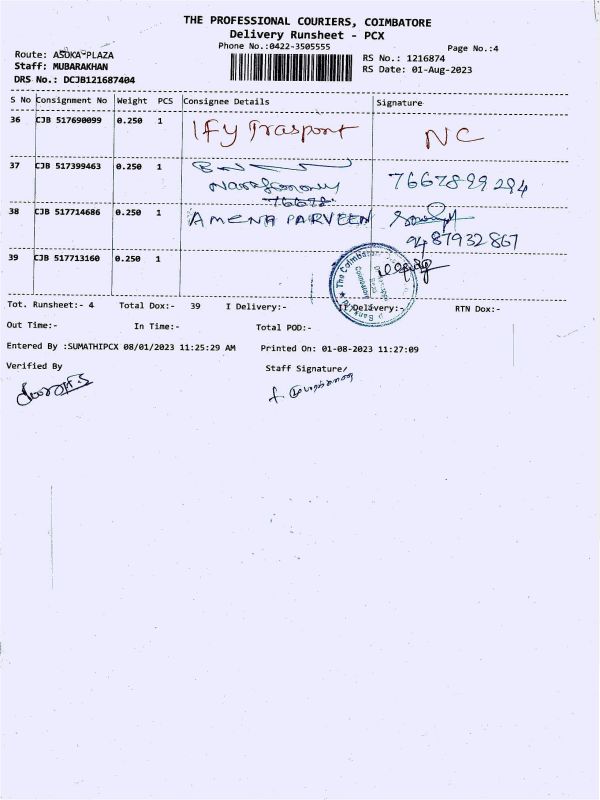 THE PROFESSIONAL COURIERS, COIMBATORE
Delivery Runsheet - PCX
Phone No.:0422-3505555
Page No.:4
Route: ASOKA-PLAZA
RS No.: 1216874
Staff: MUBARAKHAN
RS Date: 01-Aug-2023
DRS No.: DCJB121687404
S No Consignment No Weight PCS Consignee Details Signature
36 CJB 517690099 0.250 1 Ify Trasport NC
37 CJB 517399463 0.250 1
7667899294
76678
38 CJB 517714686 0.250 1 AMENA PARVEEN
9487932867
39 CJB 517713160 0.250 1
The Coimbatore
Tot. Runsheet:- 4 Total Dox:- 39 I Delivery:- II Delivery:- RTN Dox:-
Out Time:- In Time:- Total POD:-
Entered By :SUMATHIPCX 08/01/2023 11:25:29 AM Printed On: 01-08-2023 11:27:09
Verified By Staff Signature/